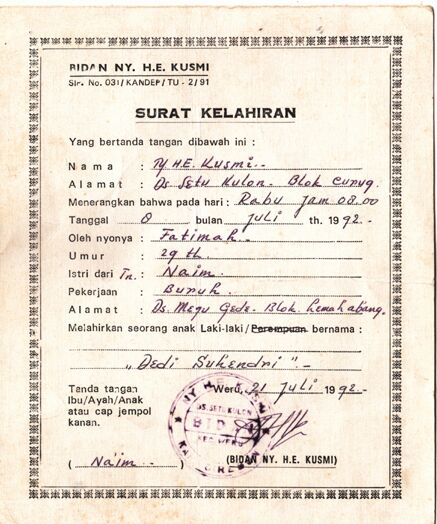 BIDAN NY. H.E. KUSMI
SIr. No. 031/KANDEP/TU - 2/91
SURAT KELAHIRAN
Yang bertanda tangan dibawah ini :
Nama : Ny H.E. Kusmi..
Alamat : Ds. Setu Kulon. Blok Curug.
Menerangkan bahwa pada hari : Rabu jam 03.00
Tanggal 8 bulan Juli th. 1992.-
Oleh nyonya : Fatimah.
Umur : 29 th.
Istri dari Tn. : Naim.
Pekerjaan : Buruh.
Alamat : Ds. Megu Gede. Blok Lemahabang.
Melahirkan seorang anak Laki-laki/Perempuan bernama :
"Dedi Suhendri".-
Tanda tangan
Ibu/Ayah/Anak
atau cap jempol
kanan.
Weru, 21 Juli 1992.-
NY H.E. KUSMI
DS. SETU KULON
BIDAN
KEC. WERU
(Naim..)
(BIDAN NY. H.E. KUSMI)